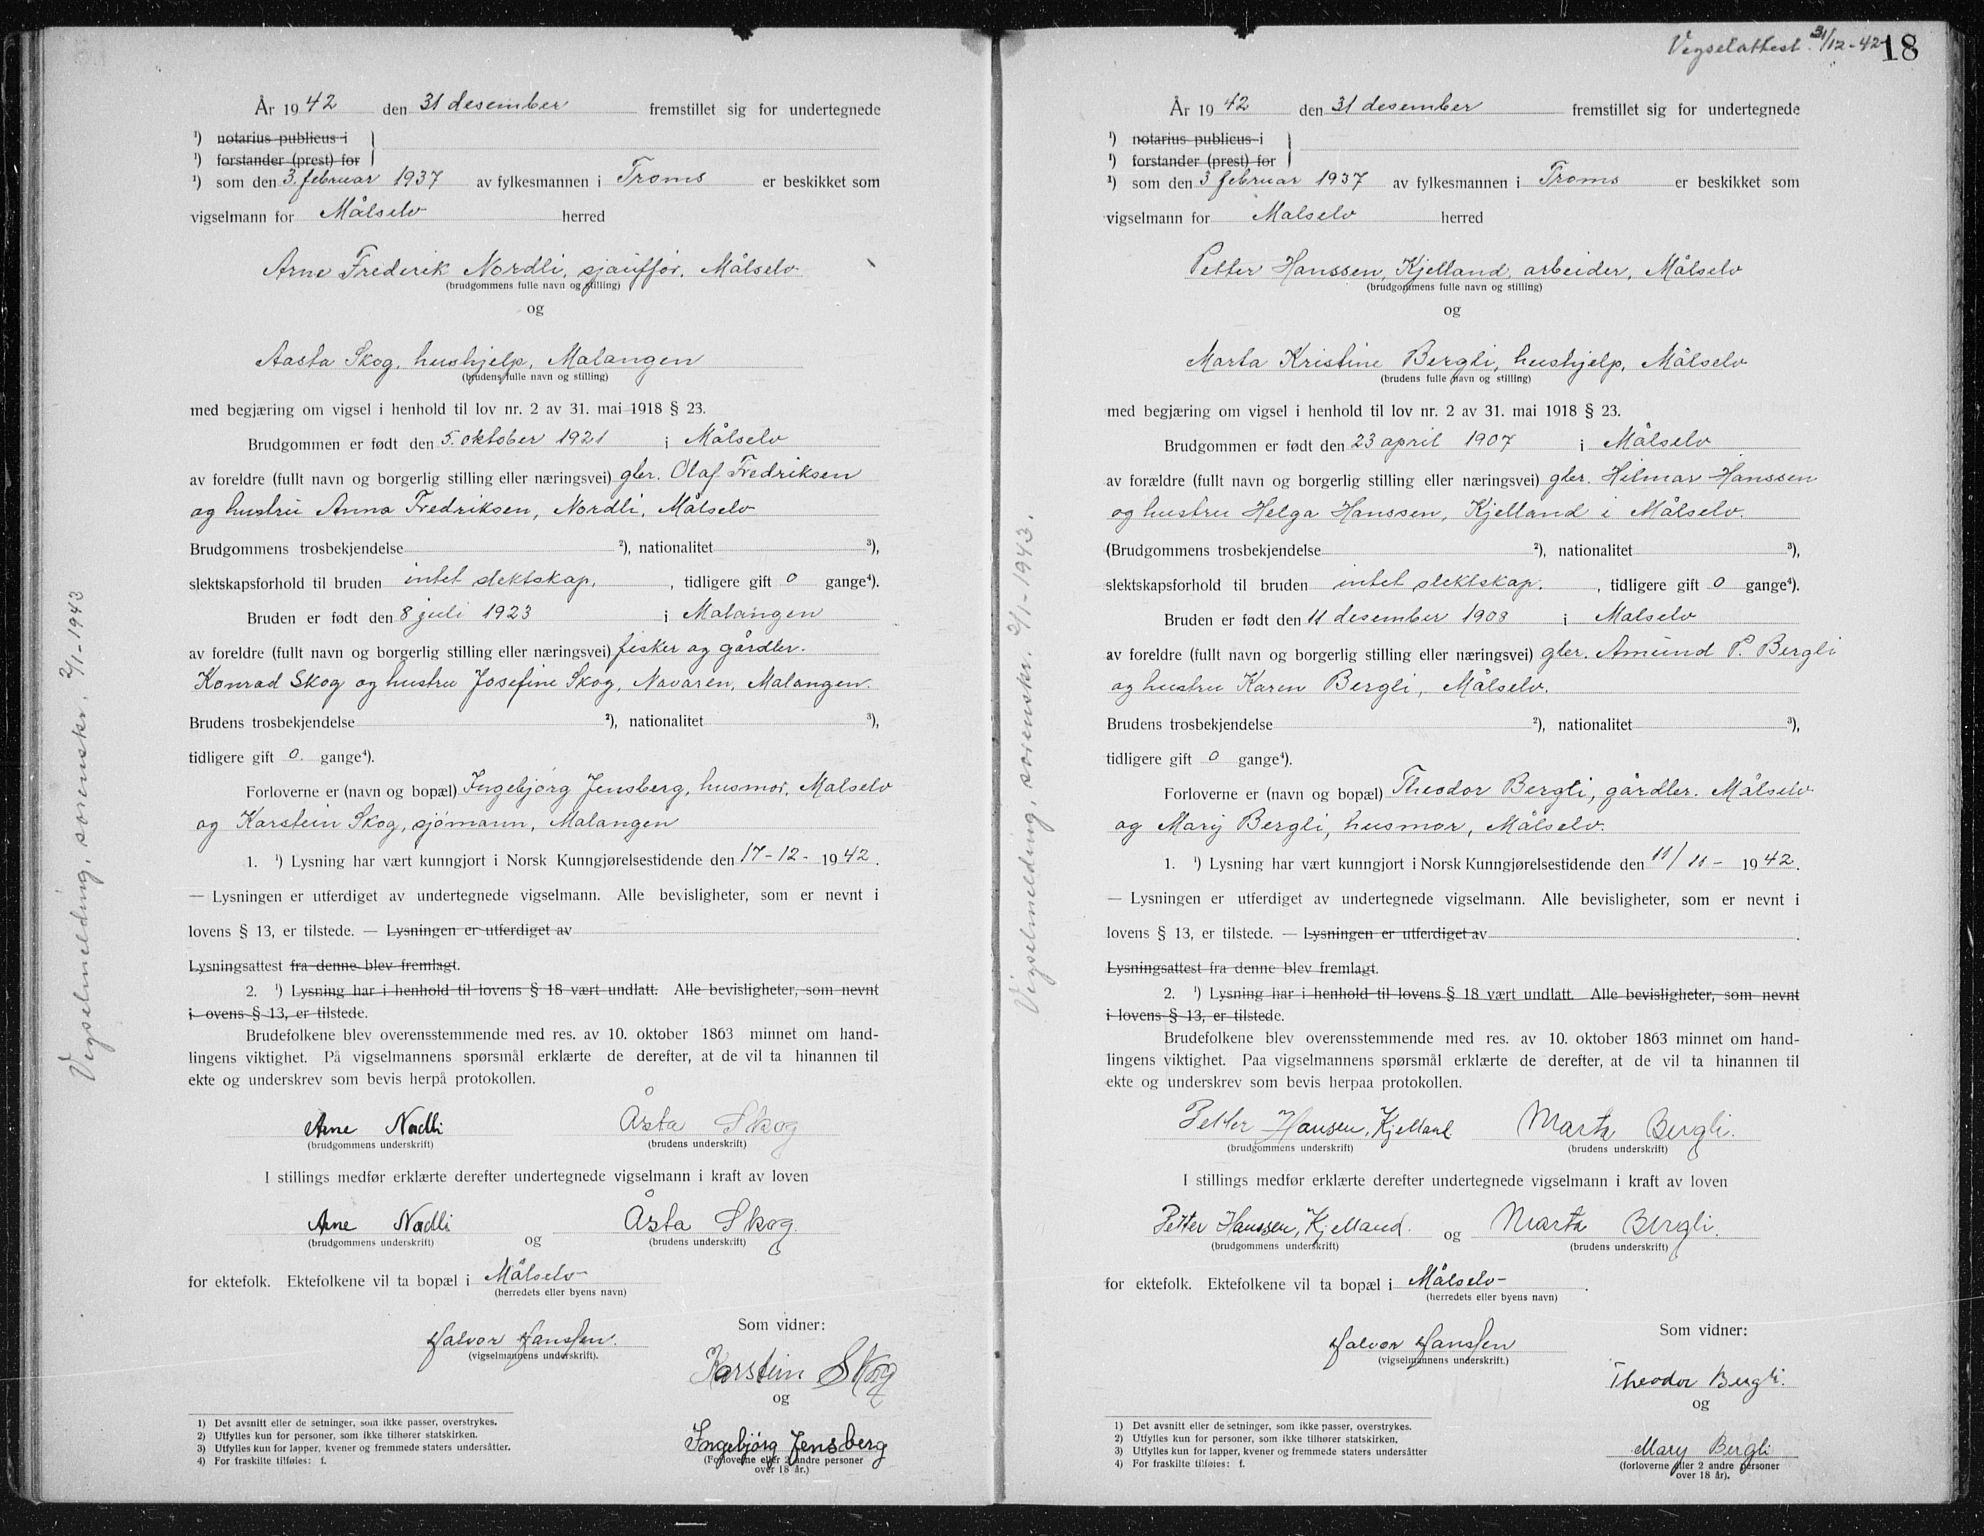 År 1942 den 31 desember fremstillet sig for undertegnede
¹) notarius publicus i
¹) forstander (prest) for
¹) som den 3. februar 1937 av fylkesmannen i Troms er beskikket som
vigselmann for Målselv herred
Arne Frederik Nordli, sjåuffør, Målselv
(brudgommens fulle navn og stilling)
og
Aasta Skog, hushjelp, Malangen
(brudens fulle navn og stilling)
med begjæring om vigsel i henhold til lov nr. 2 av 31. mai 1918 § 23.
Brudgommen er født den 5. oktober 1921 i Målselv
av foreldre (fullt navn og borgerlig stilling eller næringsvei) gbr. Olaf Fredriksen
og hustru Anna Fredriksen, Nordli, Målselv
Brudgommens trosbekjendelse ²), nationalitet ³),
slektskapsforhold til bruden intet slektskap, , tidligere gift 0 gange⁴).
Bruden er født den 8 juli 1923 i Malangen
av foreldre (fullt navn og borgerlig stilling eller næringsvei) fisker og gårdbr.
Konrad Skog og hustru Josefine Skog, Navaren, Malangen.
Brudens trosbekjendelse ²), nationalitet ³),
tidligere gift 0. gange⁴).
Forloverne er (navn og bopæl) Ingebjørg Jensberg, husmor, Målselv
og Karstein Skog, sjømann, Malangen
1. ¹) Lysning har vært kunngjort i Norsk Kunngjørelsestidende den 17-12- 1942.
— Lysningen er utferdiget av undertegnede vigselmann. Alle bevisligheter, som er nevnt i
lovens § 13, er tilstede. — Lysningen er utferdiget av
Lysningsattest fra denne blev fremlagt.
2. ¹) Lysning har i henhold til lovens § 18 vært undlatt. Alle bevisligheter, som nevnt
i ovens § 13, er tilstede.
Brudefolkene blev overensstemmende med res. av 10. oktober 1863 minnet om hand-
lingens viktighet. På vigselmannens spørsmål erklærte de derefter, at de vil ta hinannen til
ekte og underskrev som bevis herpå protokollen.
Arne Nordli Åsta Skog
(brudgommens underskrift) (brudens underskrift)
I stillings medfør erklærte derefter undertegnede vigselmann i kraft av loven
Arne Nordli og Åsta Skog.
(brudgommens underskrift) (brudens underskrift)
for ektefolk. Ektefolkene vil ta bopæl i Målselv
(herredets eller byens navn)
Halvor Hanssen.
(vigselmannens underskrift).
Som vidner:
Karstein Skog
og
Ingebjørg Jensberg
(Forloverne eller 2 andre personer
over 18 år.)
1) Det avsnitt eller de setninger, som ikke passer, overstrykes.
2) Utfylles kun for personer, som ikke tilhører statskirken.
3) Utfylles kun for lapper, kvener og fremmede staters undersåtter.
4) For fraskilte tilføies: f.
Vigselmelding, sorenskr. 2/1-1943
Vigselattest 31/12-42
18
År 1942 den 31 desember fremstillet sig for undertegnede
¹) notarius publicus i
¹) forstander (prest) for
¹) som den 3 februar 1937 av fylkesmannen i Troms er beskikket som
vigselmann for Målselv herred
Petter Hanssen, Kjelland, arbeider, Målselv
(brudgommens fulle navn og stilling)
og
Marta Kristine Bergli, hushjelp, Målselv
(brudens fulle navn og stilling)
med begjæring om vigsel i henhold til lov nr. 2 av 31. mai 1918 § 23.
Brudgommen er født den 23 april 1907 i Målselv
av forældre (fullt navn og borgerlig stilling eller næringsvei) gbr. Hilmar Hanssen
og hustru Helga Hanssen, Kjelland i Målselv.
(Brudgommens trosbekjendelse ²), nationalitet ³),
slektskapsforhold til bruden intet slektskap. , tidligere gift 0 gange⁴).
Bruden er født den 11 desember 1908 i Målselv
av foreldre (fullt navn og borgerlig stilling eller næringsvei) gbr. Amund P. Bergli
og hustru Karen Bergli, Målselv.
Brudens trosbekjendelse ²), nationalitet ³),
tidligere gift 0 gange⁴).
Forloverne er (navn og bopæl) Theodor Bergli, gårdbr. Målselv
og Mary Bergli, husmor, Målselv.
1. ¹) Lysning har vært kunngjort i Norsk Kunngjørelsestidende den 11/11- 1942.
— Lysningen er utferdiget av undertegnede vigselmann. Alle bevisligheter, som er nevnt i
lovens § 13, er tilstede. — Lysningen er utferdiget av .
Lysningsattest fra denne blev fremlagt.
2. ¹) Lysning har i henhold til lovens § 18 vært undlatt. Alle bevisligheter, som nevnt
i lovens § 13, er tilstede.
Brudefolkene blev overensstemmende med res. av 10. oktober 1863 minnet om hand-
lingens viktighet. Paa vigselmannens spørsmål erklærte de derefter, at de vil ta hinannen til
ekte og underskrev som bevis herpaa protokollen.
Petter Hansen, Kjelland Marta Bergli.
(brudgommens underskrift) (brudens underskrift)
I stillings medfør erklærte derefter undertegnede vigselmann i kraft av loven
Petter Hanssen, Kjelland. og Marta Bergli.
(brudgommens underskrift) (brudens underskrift)
for ektefolk. Ektefolkene vil ta bopæl i Målselv .
(herredets eller byens navn)
Halvor Hanssen
(vigselmannens underskrift.)
Som vidner:
Theodor Bergli.
og
Mary Bergli
(forloverne eller 2 andre personer
over 18 år).
1) Det avsnitt eller de setninger, som ikke passer, overstrykes.
2) Utfylles kun for personer, som ikke tilhører statskirken.
3) Utfylles kun for lapper, kvener og fremmede staters undersåtter
4) For fraskilte tilføies: f.
Vigselmelding, sorenskr. 2/1-1943.